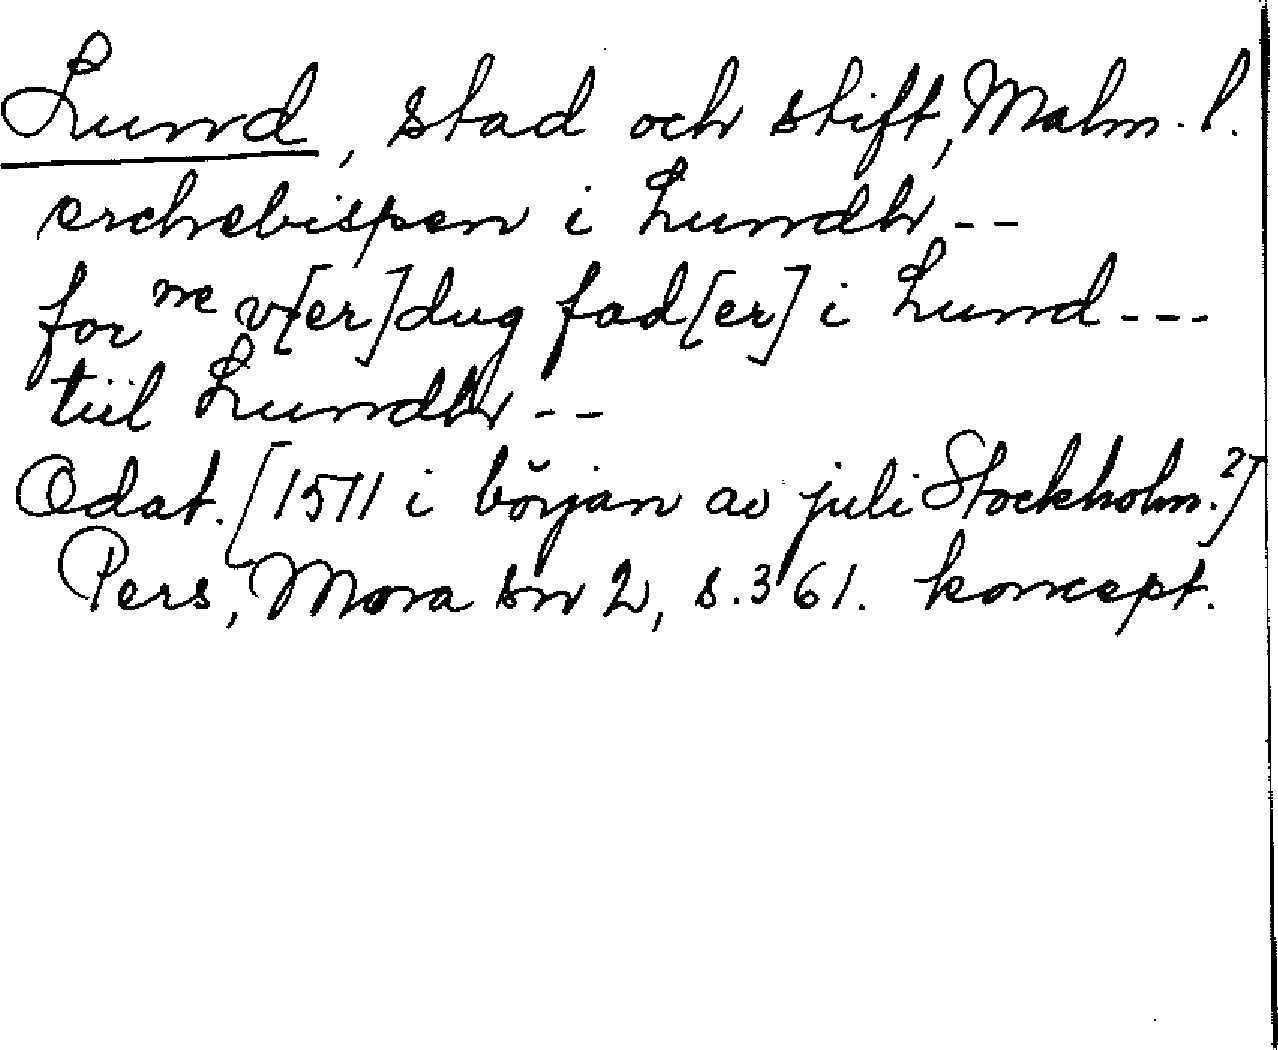 Lund, stad och stift, Malm. l.
erchebispen i Lundh --
for ne v[er]dug fad[er] i Lund ---
tiil Lundh --
Odat. [1511 i början av juli Stockholm.?]
Pers, Mora sn 2, s. 361. koncept.